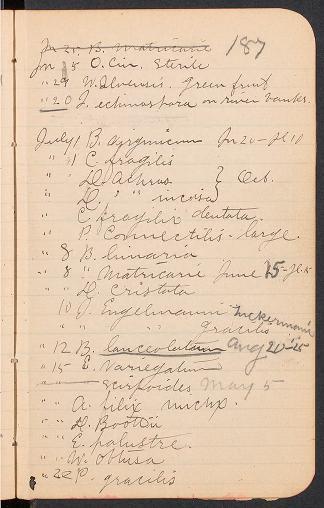 Jn 20 B. Matricariae 187
Jn 15 O. Cin. Sterile
" 29 W. Ilvensis. Green fruit
" 20 I. echinospora on river banks.
July 1 B. Jn 20 - Jl 10
" " C. fragilis
" " D. Achros } Oct.
" D. " " incisa }
" C. fragilis dentata.
" P. Connectilis - large.
" 8 B. lunaria
" 8 " Matricariae June 15 - Jl 15
" " D. cristata
10 I. Engelmanni Tuckermani
" " " gracilis
" 12 B. lanceolatum Aug 20-25
" 15 E. variegatum
" " scirpoides May 5
" " A. filix michx.
" " D. Boottii
" " E. palustre.
" " W. obtusa
" 22 P. gracilis